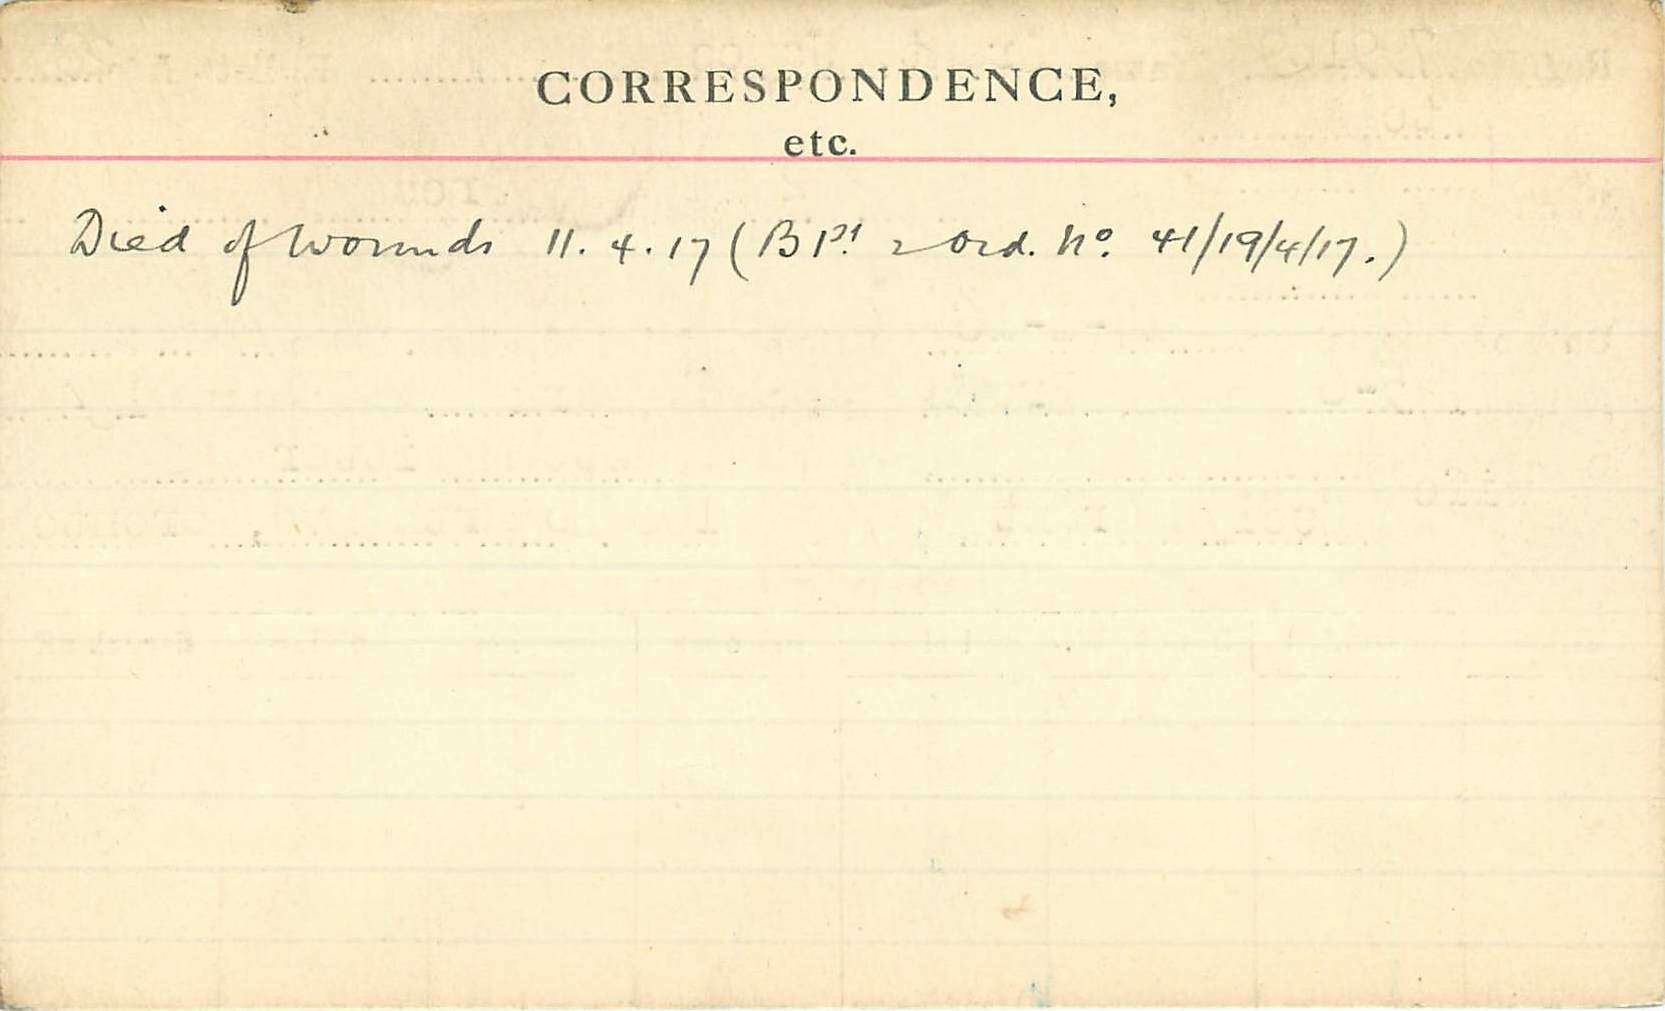 CORRESPONDENCE,
etc.
Died of Wounds 11.4.17 (B Pt 2 Ord. No. 41/19/4/17.)